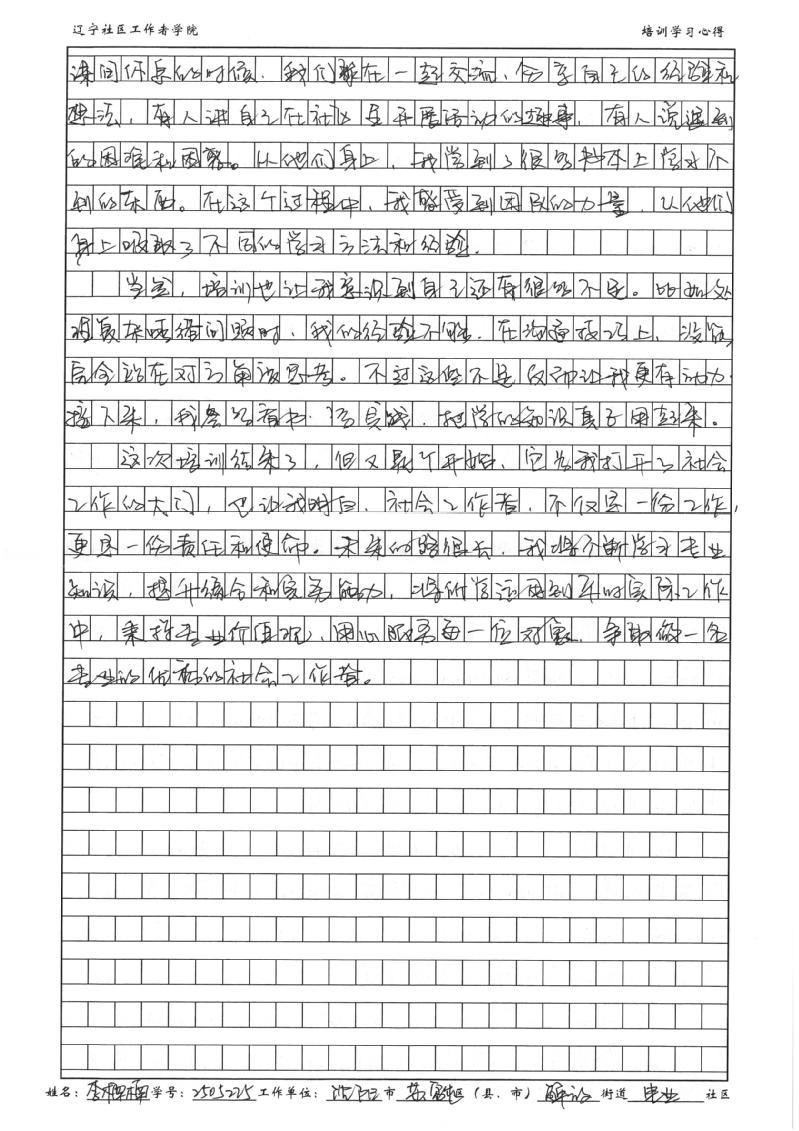 辽宁社区工作者学院 培训学习心得
课间休息的时候，我们聚在一起交流，分享自己的经验和
想法，有人讲自己在社区里开展活动的趣事，有人说遇到
的困难和困惑。从他们身上，我学到了很多书本上学不
到的东西。在这个过程中，我感受到团队的力量，从他们
身上吸取了不同的学习方法和经验。
当然，培训也让我意识到自己还有很多不足。比如处
理复杂情绪问题时，我的经验不够，在沟通技巧上，没能
完全站在对方角度思考。不过这些不足反而让我更有动力
接下来，我会多看书，多实践，把学的知识真正用起来。
这次培训结束了，但又是个开始，它为我打开了社会
工作的大门，也让我明白，社会工作者，不仅是一份工作，
更是一份责任和使命。未来的路很长，我将不断学习专业
知识，提升综合和实务能力，将所学运用到平时实际工作
中，秉持专业价值观，用心服务每一位对象，争取做一名
专业的优秀的社会工作者。
姓名： 学号：2505225 工作单位：沈阳 市 区（县、市） 街道 社区